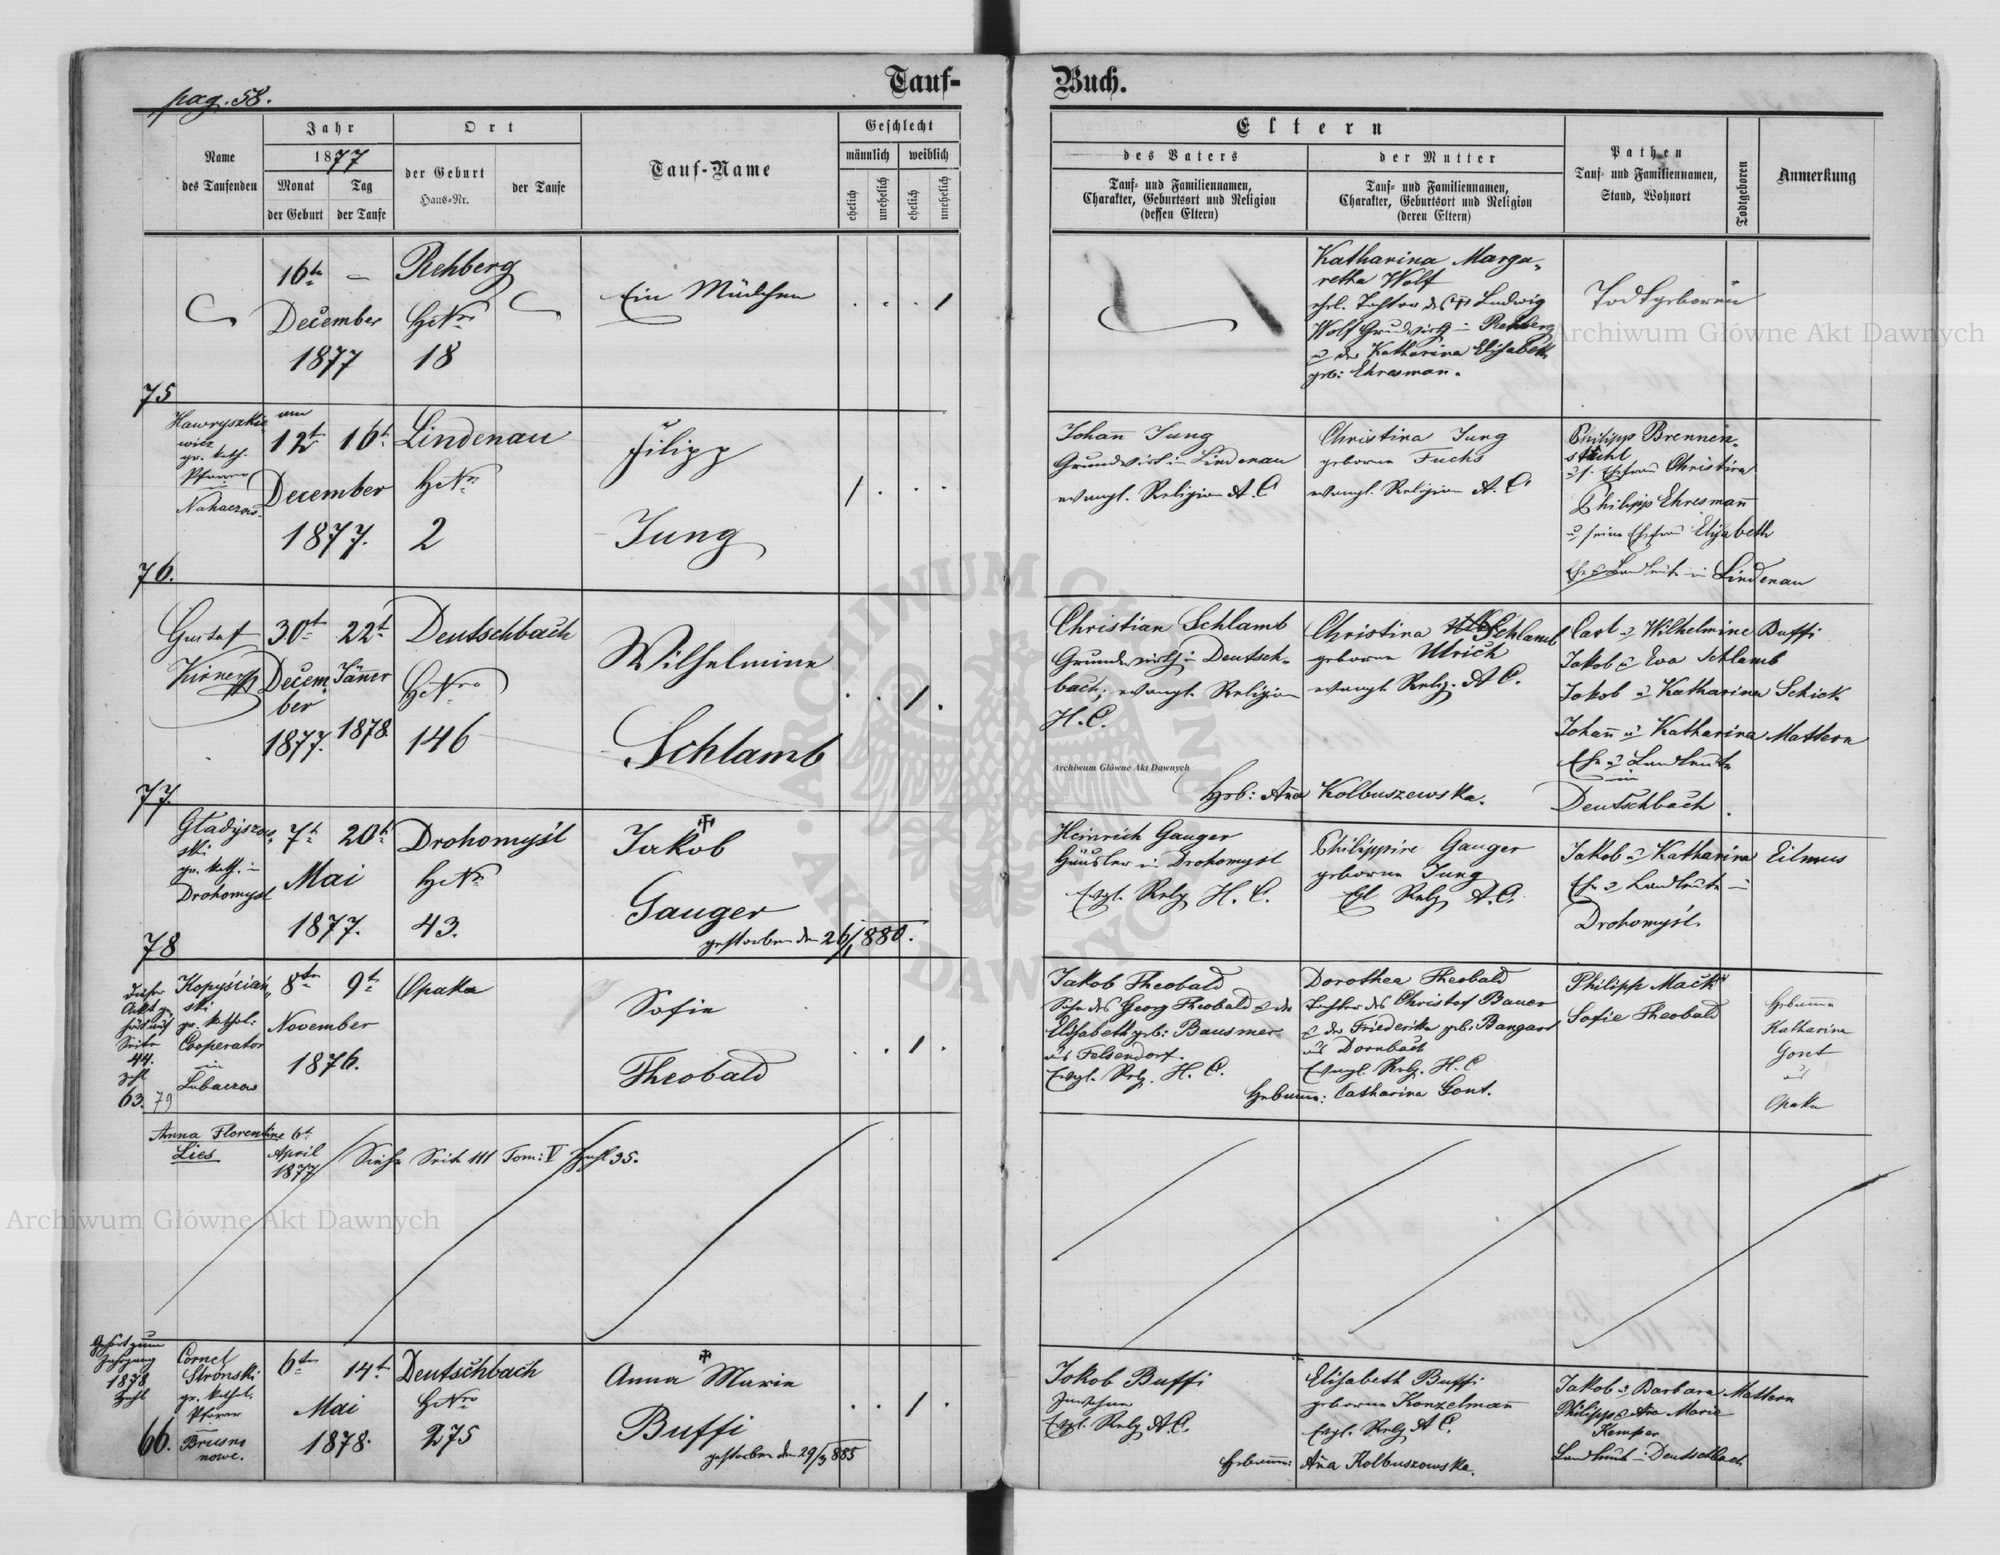 pag. 58.
Tauf-
Buch.
Name
des Taufenden
Jahr
1877
Monat
Tag
der Geburt
der Taufe
Ort
der Geburt
Haus-Nr.
der Taufe
Tauf-Name
Geschlecht
männlich
weiblich
ehelich
unehelich
ehelich
unehelich
Eltern
des Vaters
Tauf- und Familiennamen,
Charakter, Geburtsort und Religion
(dessen Eltern)
der Mutter
Tauf- und Familiennamen,
Charakter, Geburtsort und Religion
(deren Eltern)
Pathen
Tauf- und Familiennamen,
Stand, Wohnort
Todtgeboren
Anmerkung
75
16te —
December
1877
Rehberg
HsNro
18
Ein Mädchen
Katharina Marga-
retha Wolf
ehel. Tochter des Ludwig
Wolf Grundwirth in Rehberg
u der Katharina Elisabeth
geb: Ehresmann.
Todtgeboren
76.
Hawryszkie
wicz
gr. kath.
Pfarrer
in
Nahaczow.
am
12t 16t
December
1877.
Lindenau
HsNro
2
Filipp
Jung
Johann Jung
Grundwirth in Lindenau
evangl. Religion A. C
Christina Jung
geborne Fuchs
evangl. Religion A. C
Philipp Brennen-
stuhl
u s. Ehefrau Christina
Philipp Ehresmann
u seine Ehefrau Elisabeth
Landleute in Lindenau
77.
Gustaf
30t 22t
Decem- Jänner
ber
1877. 1878.
Deutschbach
HsNro
146
Wilhelmine
Schlamb
Christian Schlamb
Grundwirth in Deutsch-
bach; evangl. Religion
H. C.
Christina Schlamb
geborne Ulrich
evangl. Relg. A C.
Carl u Wilhelmine Buffi
Jakob u Eva Schlamb
Jakob u Katharina Schick
Johann u Katharina Mattern
Ehe u Landleute
in
Deutschbach.
Heb: Ana Kolbuszewska.
78
Gładyszow-
ski
gr. kath. in
Drohomysl
7t 20t
Mai
1877.
Drohomyśl
HsNro
43.
Jakob
Gauger
gestorben den 26/1 880.
Heinrich Gauger
Häusler in Drohomysl
Evgl. Relg H. C.
Philippine Gauger
geborne Jung
Egl Relg A. C.
Jakob u Katharina Eilmus
Ehe u Landleute in
Drohomyśl.
dieser
Akt ge-
hört auf
Seite
44.
Zahl
63. 79
Kopyściań-
ski
gr. kathol:
Cooperator
in
Lubaczow
8te 9t
November
1876.
Opaka
Sofie
Theobald
Jakob Theobald
Sohn des Georg Theobald u der
Elisabeth geb: Bausmer
aus Felsendorf.
Evgl. Relg. H. C.
Dorothea Theobald
Tochter des Christof Bauer
u der Friederika geb: Bangard
aus Dornbach
Evangl. Relg. H. C
Hebamme: Catharina Gont.
Philipp Mack
Sofie Theobald
Hebamme
Katharina
Gont
aus
Opaka
Anna Florentine
Lies
6t
April
1877
Siehe Seite 111 Tom: V Zahl 35.
Gehört zum
Jahrgang
1878
Zahl
66.
Cornel
Stronski
gr. kathol.
Pfarrer
in
Brusno
nowe.
6te 14t
Mai
1878.
Deutschbach
HsNro
275
Anna Marie
Buffi
gestorben den 29/3 885
Jakob Buffi
Evgl. Relg A.C.
Elisabeth Buffi
geborne Konzelmann
Evgl. Relg A C.
Hebamme: Ana Kolbuszowska.
Jakob u Barbara Mattern
Philipp u Ana Marie
Kemper
Landleute in Deutschbach
Archiwum Główne Akt Dawnych
Archiwum Główne Akt Dawnych
Archiwum Główne Akt Dawnych
ARCHIWUM GŁÓWNE AKT DAWNYCH